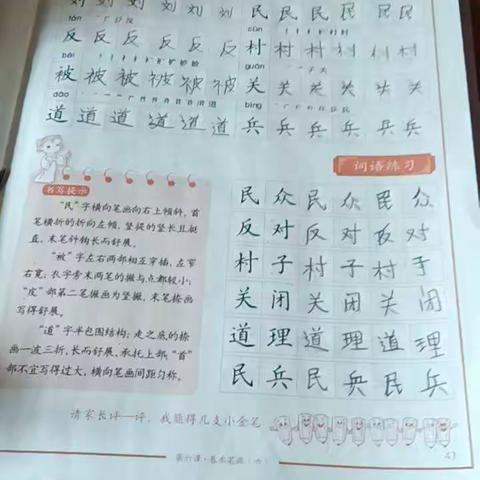 刘 刘 刘 刘 刘 刘 民 民 民 民 民 民
fǎn cūn
反 反 反 反 反 反 村 村 村 村 村 村
bèi guān
被 被 被 被 被 被 关 关 关 关 关 关
dào bīng
道 道 道 道 道 道 兵 兵 兵 兵 兵 兵
词语练习
书写提示
“民”字横向笔画向右上倾斜,首
笔横折的折向左倾,竖提的竖长且挺
直,末笔斜钩长而舒展。
“被”字左右两部相互穿插,左窄
右宽;衣字旁末两笔的撇与点都较小;
“皮”部第二笔撇画为竖撇,末笔捺画
写得舒展。
“道”字半包围结构;走之底的捺
画一波三折,长而舒展,承托上部;“首”
部不宜写得过大,横向笔画间距匀称。
民 众 民 众 民 众
反 对 反 对 反 对
村 子 村 子 村 子
关 闭 关 闭 关 闭
道 理 道 理 道 理
民 兵 民 兵 民 兵
请家长评一评,我能得几支小金笔
第六课·基本笔画(六)
47